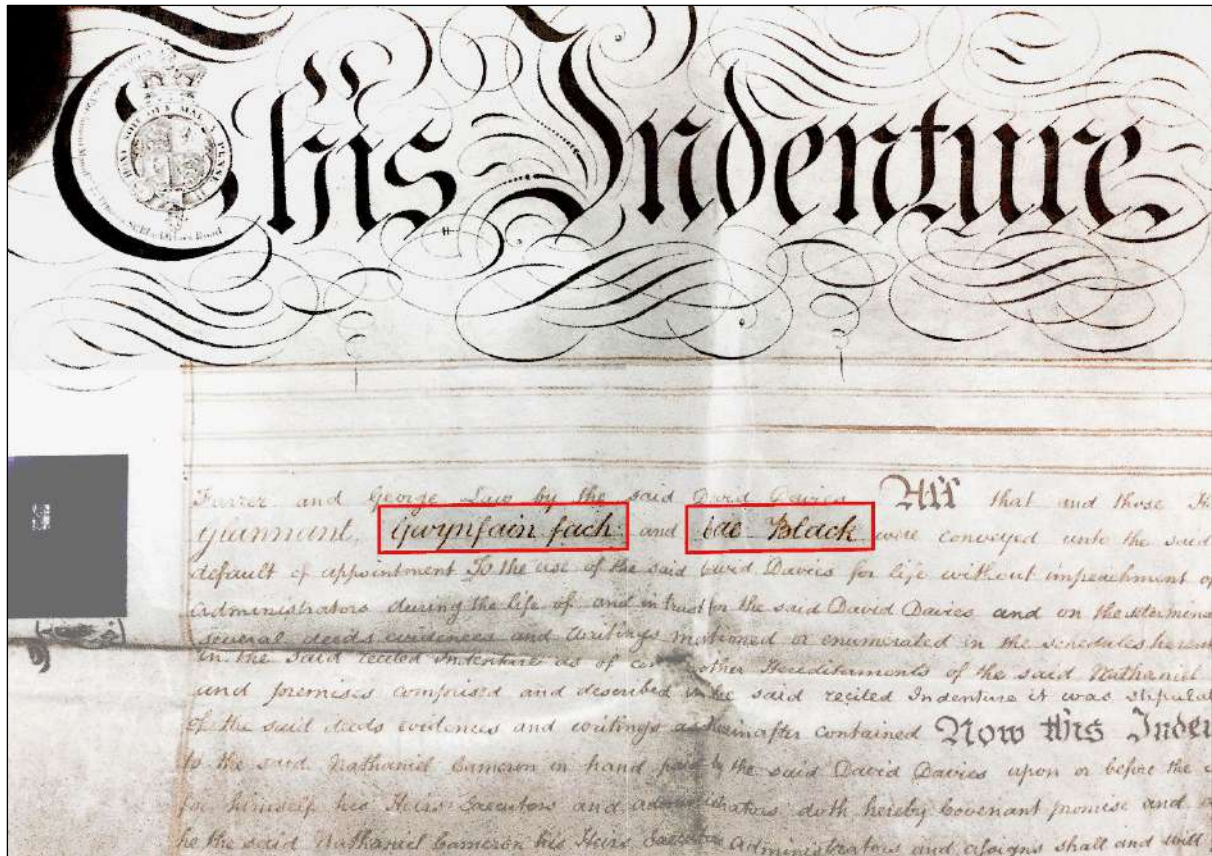 This Indenture
Farrer and George Law by the said David Davies All that and those
Glannant, Gwynfain fach and Cae Black were conveyed unto the said
default of appointment To the use of the said David Davies for life without impeachment of
Administrators during the life of and in trust for the said David Davies and on the
several deeds evidences and Writings mentioned or enumerated in the schedules
in the said recited Indenture as of other Hereditaments of the said Nathaniel
and premises comprised and described in the said recited Indenture it was
of the said deeds evidences and writings as hereinafter contained Now this
to the said Nathaniel Cameron in hand paid by the said David Davies upon or before the
for himself his Heirs Executors and Administrators doth hereby Covenant promise and
he the said Nathaniel Cameron his Heirs Executors Administrators and assigns shall and will